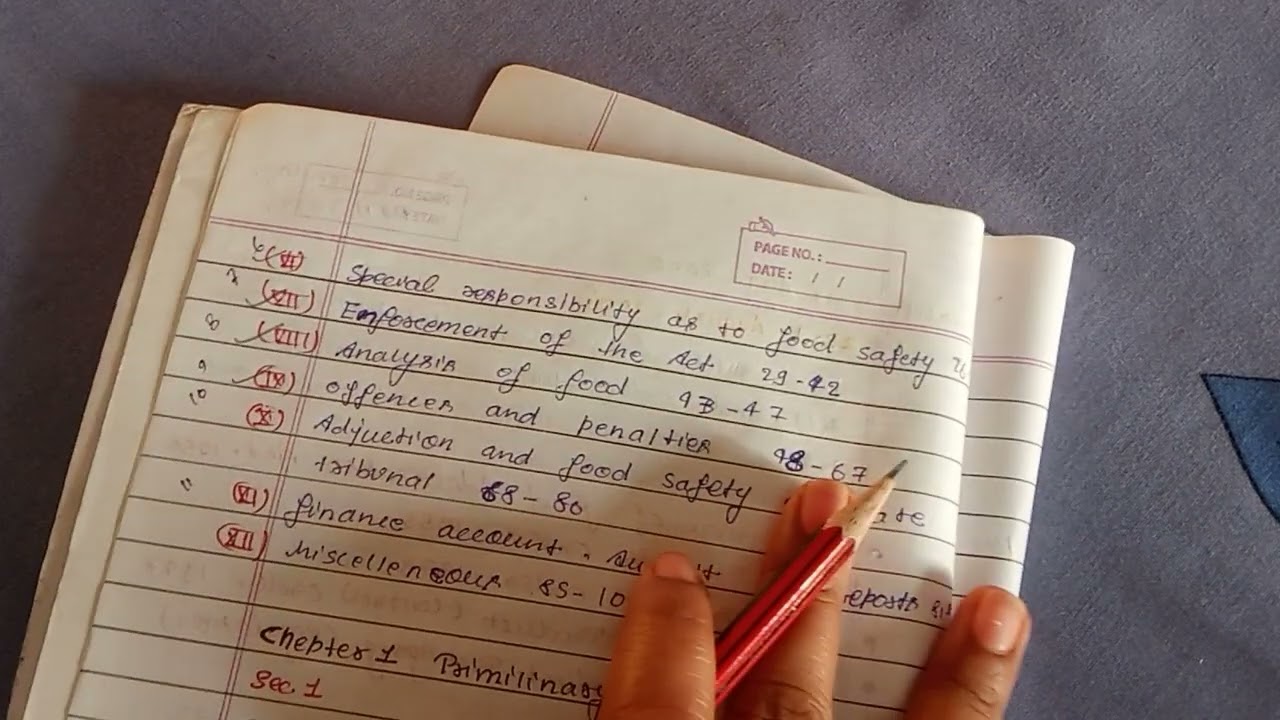 PAGE NO.:
DATE: / /
(VI) Specual responsibility as to food safety
(VII) Enforcement of the Act 29-42
(VIII) Analysis of food 43-47
(IX) offences and penalties 48-67
(X) Adjuction and food safety
tribunal 68-80
(XI) finance account. reposts
(XII) Miscelleneous 85-10
Chepter 1 Primilinary
Sec. 1